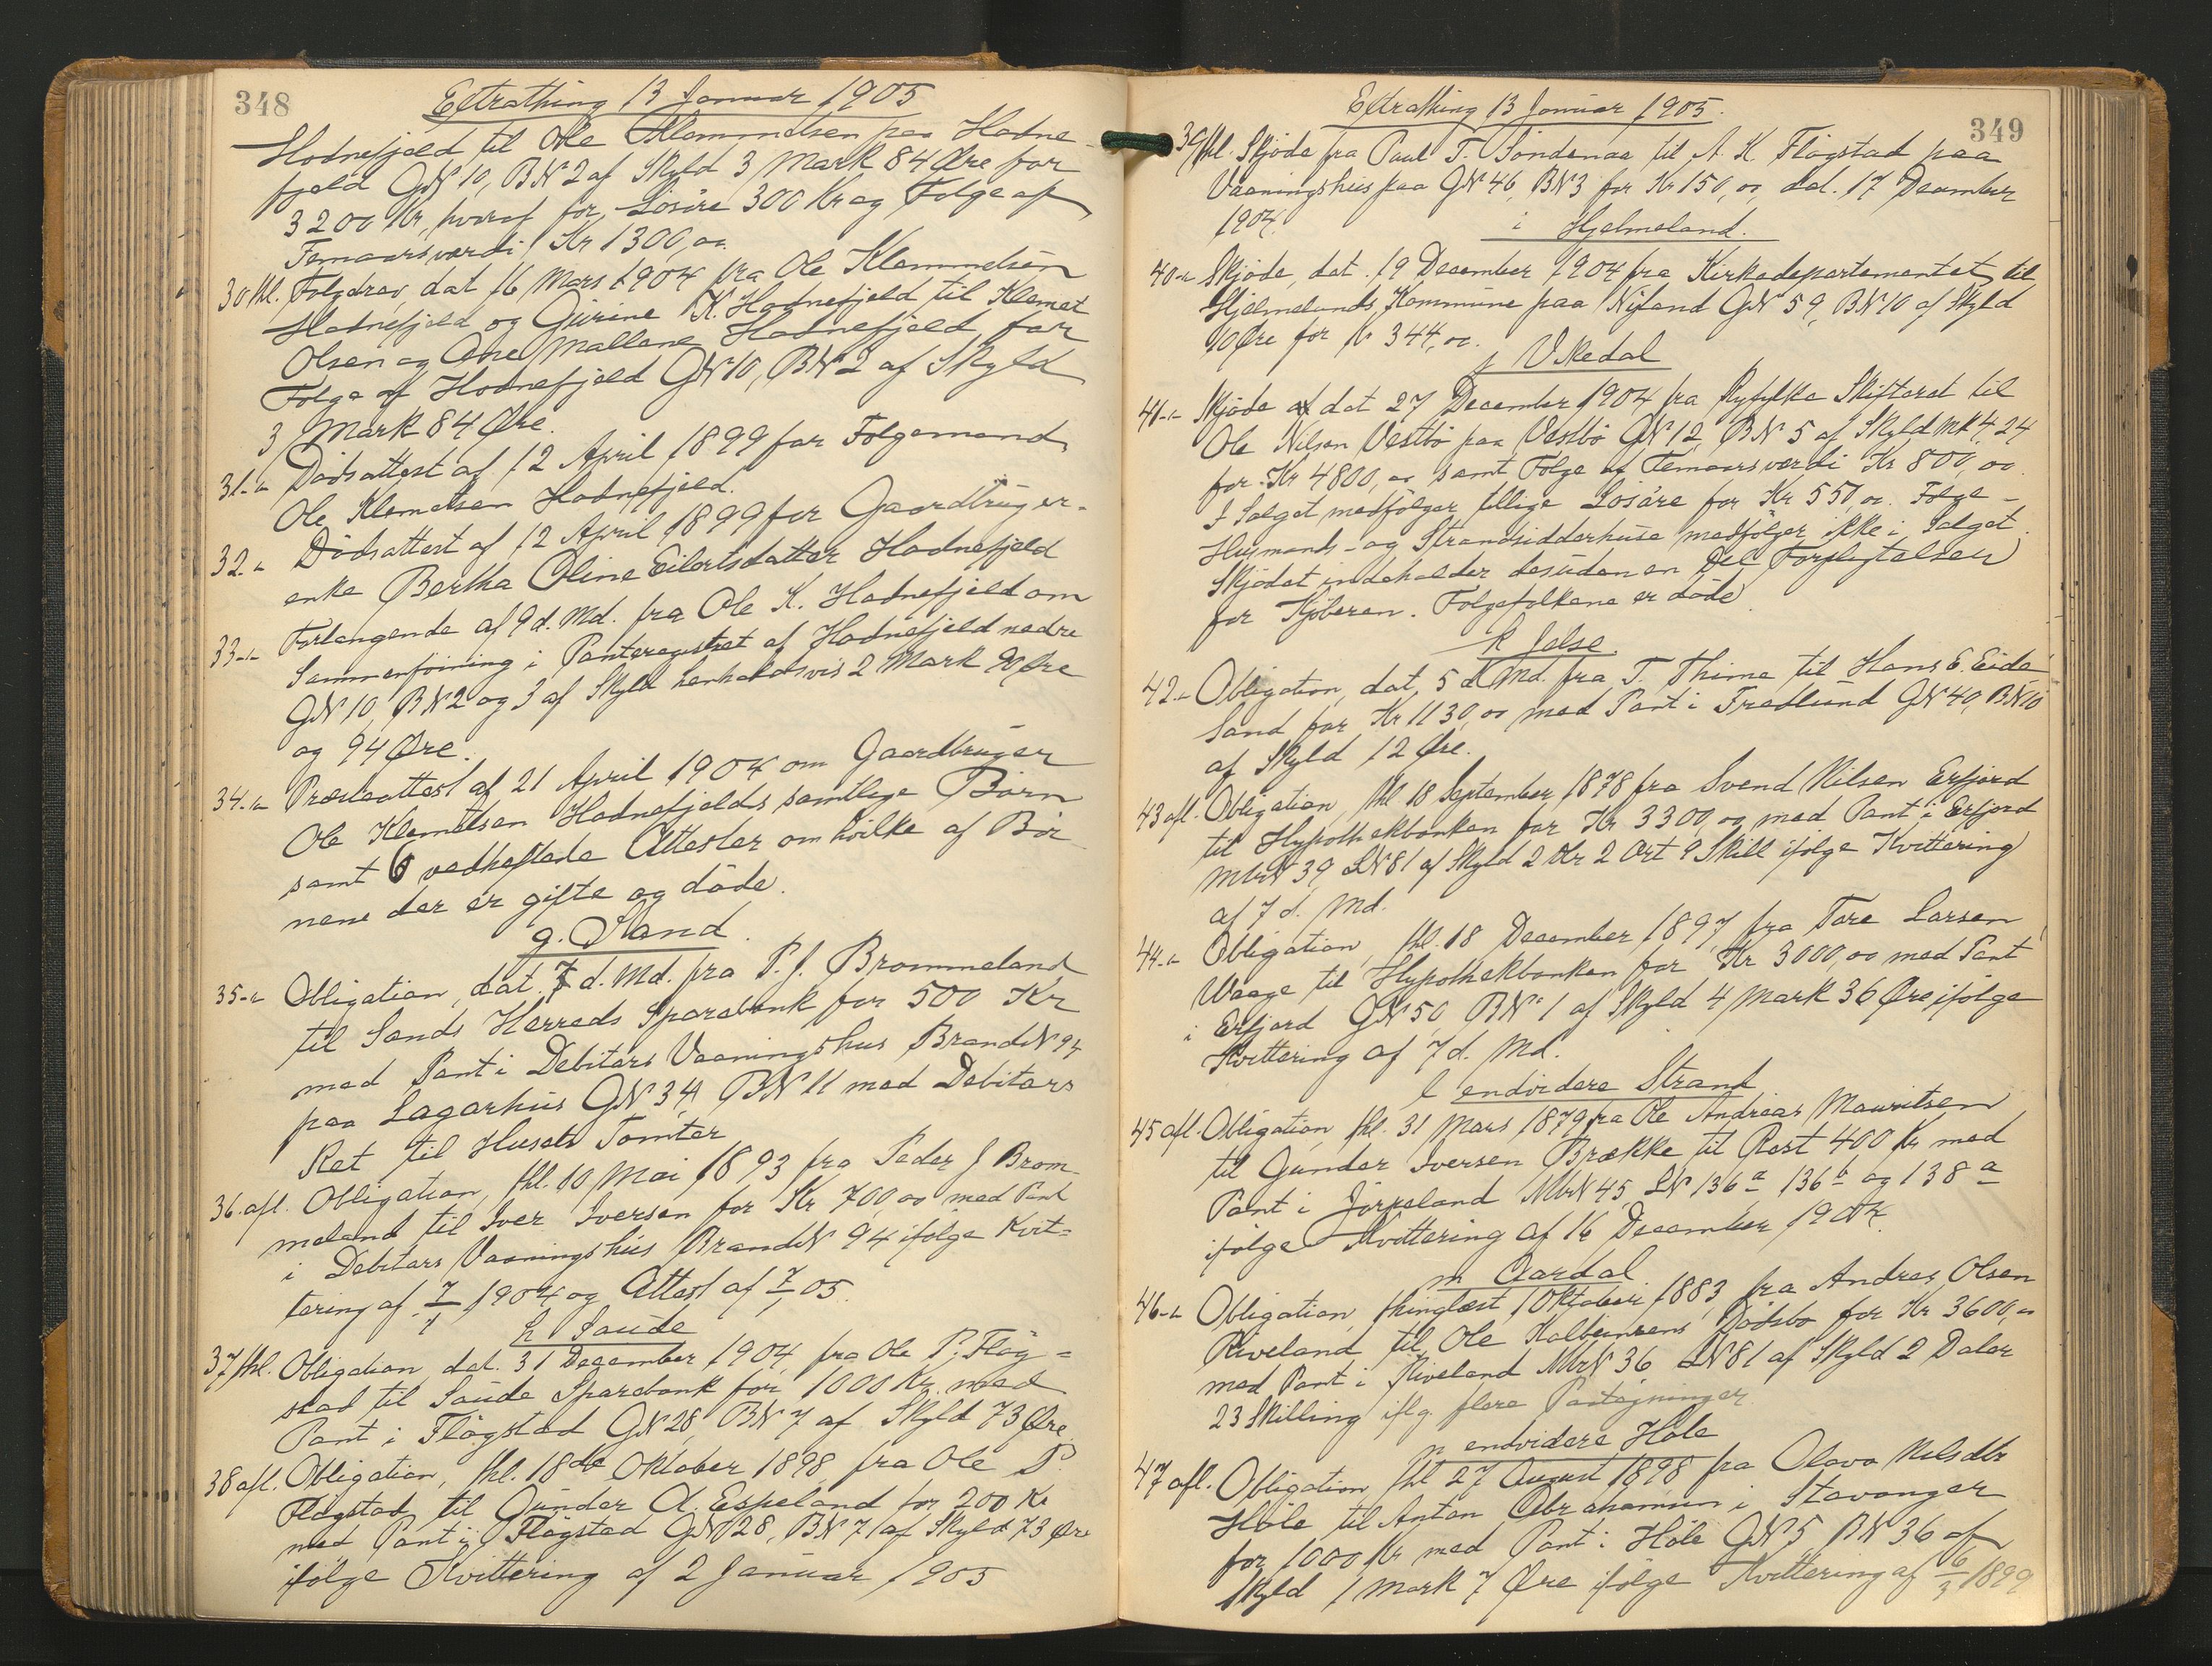 348
Extrathing 13 Januar 1905
Hodnefjeld til Ole Klemmetsen paa Hodne-
fjeld GN 10, BN 2 af Skyld 3 Mark 84 Øre for
3200 Kr, hvoraf for Løsøre 300 Kr og Følge af
Femaarsværdi Kr 1300,oo
30 thl. Følgebrev, dat 16 Mars 1904 fra Ole Klemmetsen
Hodnefjeld og Gurine K. Hodnefjeld til Klemet
Olsen og Ane Mallene Hodnefjeld for
Følge af Hodnefjeld GN 10, BN 2 af Skyld
3 Mark 84 Øre.
31-"- Dødsattest af 12 April 1899 for Følgemand
Ole Klemetsen Hodnefjeld.
32-"- Dødsattest af 12 April 1899 for Gaardbruger-
enke Bertha Oline Eilertsdatter Hodnefjeld
33-"- Forlangende af 9 d. Md. fra Ole K. Hodnefjeld om
Sammenføining i Panteregistret af Hodnefjeld nedre
GN 10, BN 2 og 3 af Skyld henholdsvis 2 Mark 90 Øre
og 94 Øre.
34-"- Præsteattest af 21 April 1904 om Gaardbruger
Ole Klemetsen Hodnefjelds samtlige Børn
samt 6 vedheftede Attester om hvilke af Bør
nene der er gifte og døde.
g. Sand.
35-"- Obligation, dat. 7 d. Md. fra P. J. Brommeland
til Sands Herreds Sparebank for 500 Kr
med Pant i Debitors Vaaningshus BrandN 94
paa Lagerhus GN 34, BN 11 med Debitors
Ret til Husets Tomter
36. afl. Obligation, thl. 10 Mai 1893 fra Peder J Brom-
meland til Iver Iversen for Kr 700,oo med Pant
i Debitors Vaaningshus BrandN 94 ifølge Kvit-
tering af 7/1 1904 og Attest af 7/1 05.
h Saude
37 thl. Obligation dat. 31 December 1904 fra Ole P. Fløg-
stad til Saude Sparebank for 1000 Kr. med
Pant i Fløgstad GN 28, BN 7 af Skyld 73 Øre
38 afl. Obligation, thl. 18de Oktober 1898 fra Ole P.
Fløgstad til Gunder A. Espeland for 200 Kr
med Pant i Fløgstad GN 28, BN 7 af Skyld 73 Øre
ifølge Kvittering af 2 Januar 1905
349
Extrathing 13 Januar 1905.
39 thl. Skjøde fra Paul T. Søndenaa til A. K. Fløgstad paa
Vaaningshus paa GN 46, BN 3 for Kr 150,oo, dat. 17 December
1904.
i Hjelmeland.
40-"- Skjøde, dat. 19 December 1904 fra Kirkedepartementet til
Hjelmelands Kommune paa Nyland GN 59, BN 10 af Skyld
10 Øre for Kr 344,oo.
j Vikedal
41-"- Skjøde af dat 27 December 1904 fra Ryfylke Skifteret til
Ole Nilsen Vestbø paa Vestbø GN 12, BN 5 af Skyld Mk 4.24
for Kr 4800,oo samt Følge af Femaarsværdi Kr 800,oo
I Salget medfølger tillige Løsøre for Kr 550,oo. Følge-
Husmands- og Strandsidderhuse medfølger ikke i Salget.
Skjødet indeholder desuden en Del Forpligtelser
for Kjøberen. Følgefolkene er døde
k Jelse.
42-"- Obligation, dat. 5 d. Md. fra T. Thime til Hans E. Eide
Sand for Kr 1130,oo med Pant i Fredlund GN 40, BN 10
af Skyld 12 Øre.
43 afl. Obligation, thl 18 September 1878 fra Svend Nilsen Erfjord
til Hypothekbanken for Kr 3300,oo med Pant i Erfjord
MtrN 39, LN 81 af Skyld 2 Dlr 2 Ort 9 Skill ifølge Kvittering
af 7 d. Md.
44-"- Obligation, thl. 18 December 1897 fra Tore Larsen
Waage til Hypothekbanken for Kr 3000,oo med Pant
i Erfjord GN 50 BN 1 af Skyld 4 Mark 36 Øre ifølge
Kvittering af 7 d. Md.
l endvidere Strand
45 afl. Obligation, thl. 31 Mars 1879 fra Ole Andreas Mauritsen
til Gunder Iversen Brække til Rest 400 Kr med
Pant i Jørpeland MtrN 45, LN 136a 136b og 138a
ifølge Kvittering af 16 December 1904.
m Aardal
46-"- Obligation, thinglæst 1 Oktober 1883 fra Andreas Olsen
Riveland til Ole Kolbeinsens Dødsbo for Kr 3600,oo
med Pant i Riveland MtrN 36 LN 81 af Skyld 2 Daler
23 Skilling iflg. flere Paategninger
n endvidere Høle
47 afl. Obligation, thl 27 August 1898 fra Olava Nilsdtr
Høle til Anton Abrahamsen i Stavanger
for 1000 Kr med Pant i Høle GN 5, BN 36 af
Skyld 1 Mark 7 Øre ifølge Kvittering af 16/3 1899